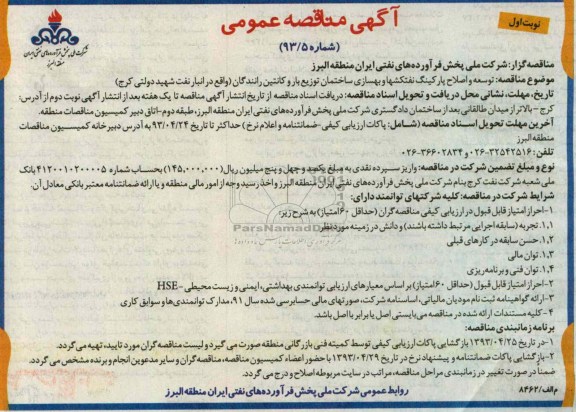 نوبت اول
آگهی مناقصه عمومی
(شماره ۹۳/۵)
شرکت ملی پخش فرآورده‌های نفتی ایران
منطقه البرز
مناقصه گزار: شرکت ملی پخش فرآورده‌های نفتی ایران منطقه البرز
موضوع مناقصه: توسعه و اصلاح پارکینگ نفتکشها و بهسازی ساختمان توزیع بار و کانتین رانندگان (واقع در انبار نفت شهید دولتی کرج)
تاریخ، مهلت، نشانی محل دریافت و تحویل اسناد مناقصه: دریافت اسناد مناقصه از تاریخ انتشار آگهی مناقصه تا یک هفته بعد از انتشار آگهی نوبت دوم از آدرس:
کرج - بالاتر از میدان طالقانی بعد از ساختمان دادگستری شرکت ملی پخش فرآورده‌های نفتی ایران منطقه البرز، طبقه دوم - اتاق دبیر کمیسیون مناقصات
آخرین مهلت تحویل اسناد مناقصه (شامل: پاکات ارزیابی کیفی - ضمانتنامه و اعلام نرخ) حداکثر تا تاریخ ۹۳/۰۴/۲۴ به آدرس دبیرخانه کمیسیون مناقصات
منطقه البرز
تلفن: ۳۲۵۴۲۵۱۶-۰۲۶ و ۳۶۶۰۲۸۳۴-۰۲۶
نوع و مبلغ تضمین شرکت در مناقصه: واریز سپرده نقدی به مبلغ یکصد و چهل و پنج میلیون ریال (۱۴۵,۰۰۰,۰۰۰) بحساب شماره ۴۱۲۰۰۱۰۲۰۰۰۵ بانک
ملی شعبه شرکت نفت کرج بنام شرکت ملی پخش فرآورده‌های نفتی ایران منطقه البرز و اخذ رسید وجه از امور مالی منطقه و یا ارائه ضمانتنامه معتبر بانکی معادل آن.
شرایط شرکت در مناقصه: کلیه شرکتهای توانمند دارای:
۱- احراز امتیاز قابل قبول در ارزیابی کیفی مناقصه گران (حداقل ۶۰ امتیاز) به شرح زیر:
۱،۱. تجربه (سابقه اجرایی مرتبط داشته باشند) و دانش در زمینه مورد نظر
۱،۲. حسن سابقه در کارهای قبلی
۱،۳. توان مالی
۱،۴. توان فنی و برنامه ریزی
۲- احراز امتیاز قابل قبول (حداقل ۶۰ امتیاز) بر اساس معیارهای ارزیابی توانمندی بهداشتی، ایمنی و زیست محیطی - HSE
۳- ارائه گواهینامه ثبت نام مودیان مالیاتی، اساسنامه شرکت، صورتهای مالی حسابرسی شده سال ۹۱، مدارک توانمندی‌ها و سوابق کاری
۴- کلیه مستندات ارائه شده در مناقصه می‌بایستی اصل یا برابر با اصل باشد.
برنامه زمانبندی مناقصه:
۱- در تاریخ ۱۳۹۳/۰۴/۲۵ بازگشایی پاکات ارزیابی کیفی توسط کمیته فنی بازرگانی منطقه صورت می گیرد و لیست مناقصه گران مورد تایید، تهیه می گردد.
۲- بازگشایی پاکات ضمانتنامه و پیشنهاد نرخ در تاریخ ۱۳۹۳/۰۴/۲۹ با حضور اعضاء کمیسیون مناقصه، مناقصه گران و سایر مدعوین انجام و برنده مشخص می گردد.
ضمناً در صورت تغییر در زمانبندی مراحل مناقصه، مراتب در سایت مربوطه اصلاح و درج می گردد.
روابط عمومی شرکت ملی پخش فرآورده‌های نفتی ایران منطقه البرز
م الف/۸۴۶۲
ParsNamadData